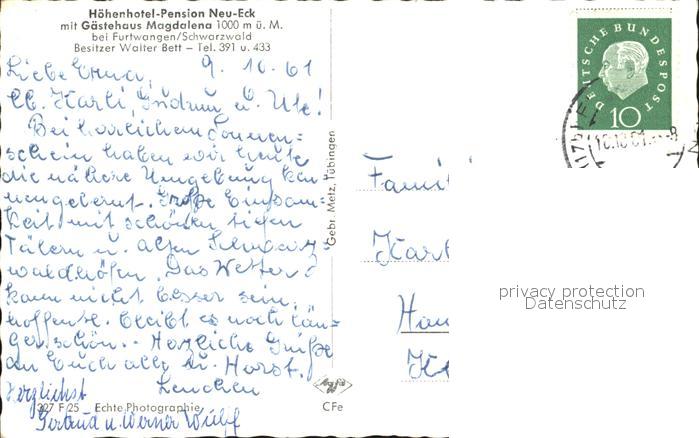 Höhenhotel-Pension Neu-Eck
mit Gästehaus Magdalena 1000 m ü. M.
bei Furtwangen/Schwarzwald
Besitzer Walter Bett – Tel. 391 u. 433
Liebe Erna, 9. 10. 61
lb. Karli, Gudrun u. Ute!
Bei herrlichem Sonnen=
schein haben wir heute
die nähere Umgebung ken=
nengelernt. Große Einsam=
keit mit schönen tiefen
Tälern u. alten Schwarz=
waldhöfen. Das Wetter
kann nicht besser sein,
hoffentl. bleibt es noch län=
ger schön. Herzliche Grüße
an Euch alle u. Horst.
Lenchen
Herzlichst
Gertrud u. Werner
327 F 25 Echte Photographie
Agfa
CFe
Gebr. Metz, Tübingen
DEUTSCHE BUNDESPOST
10
10.10.61
Famil
Karl
Ha
privacy protection
Datenschutz